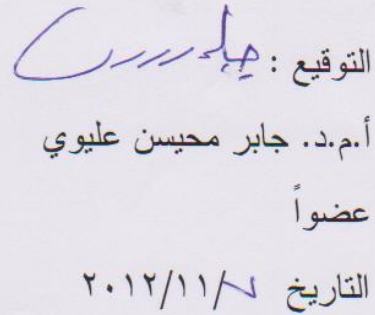 التوقيع :
أ.م.د. جابر محيسن عليوي
عضواً
التاريخ /١١/٢٠١٢